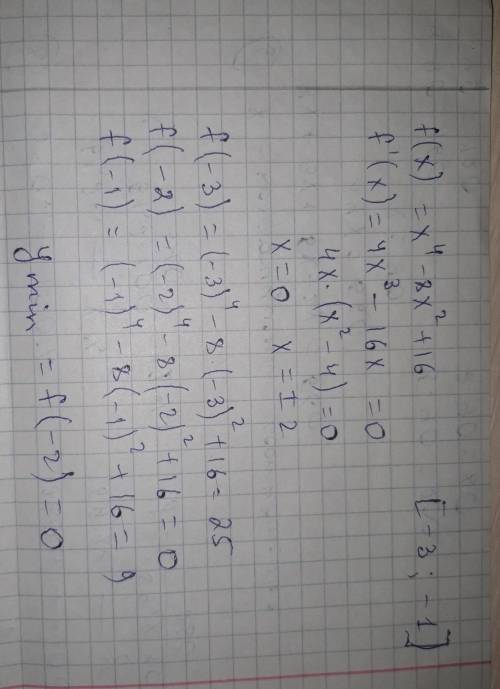 f(x) = x⁴ - 8x² + 16 [-3; -1]
f'(x) = 4x³ - 16x = 0
4x·(x² - 4) = 0
x = 0 x = ±2
f(-3) = (-3)⁴ - 8·(-3)² + 16 = 25
f(-2) = (-2)⁴ - 8·(-2)² + 16 = 0
f(-1) = (-1)⁴ - 8(-1)² + 16 = 9
y min = f(-2) = 0